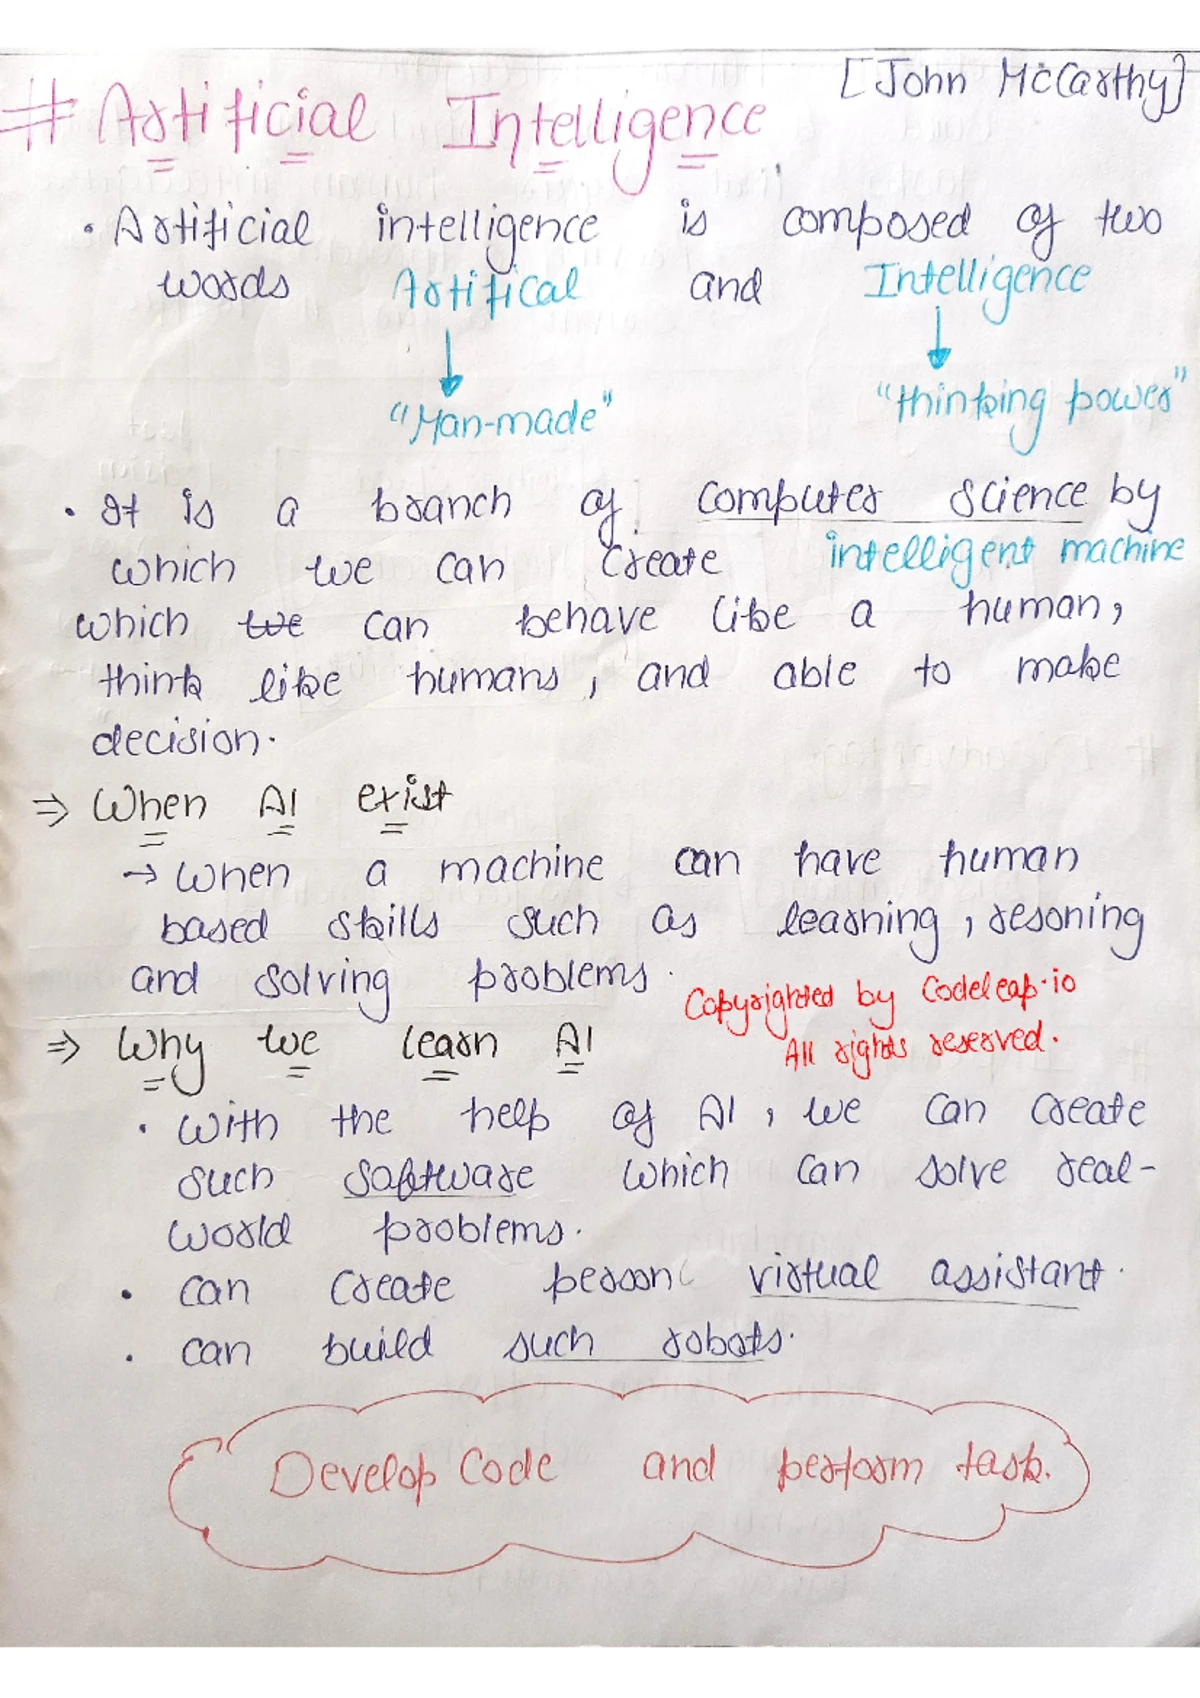 [John McCarthy]
# Artificial Intelligence
• Artificial intelligence is composed of two
words Artifical and Intelligence
"Man-made" "thinking power"
• It is a branch of computer science by
which we can create intelligent machine
which we can behave like a human,
think like humans, and able to make
decision.
⇒ When AI exist
→ When a machine can have human
based skills such as learning, resoning
and solving problems.
Copyrighted by Codeleap.io
All rights reserved.
⇒ Why we learn AI
• With the help of AI, we can create
such software which can solve real-
world problems.
• can create virtual assistant.
• can build such robots.
Develop Code and perform task.